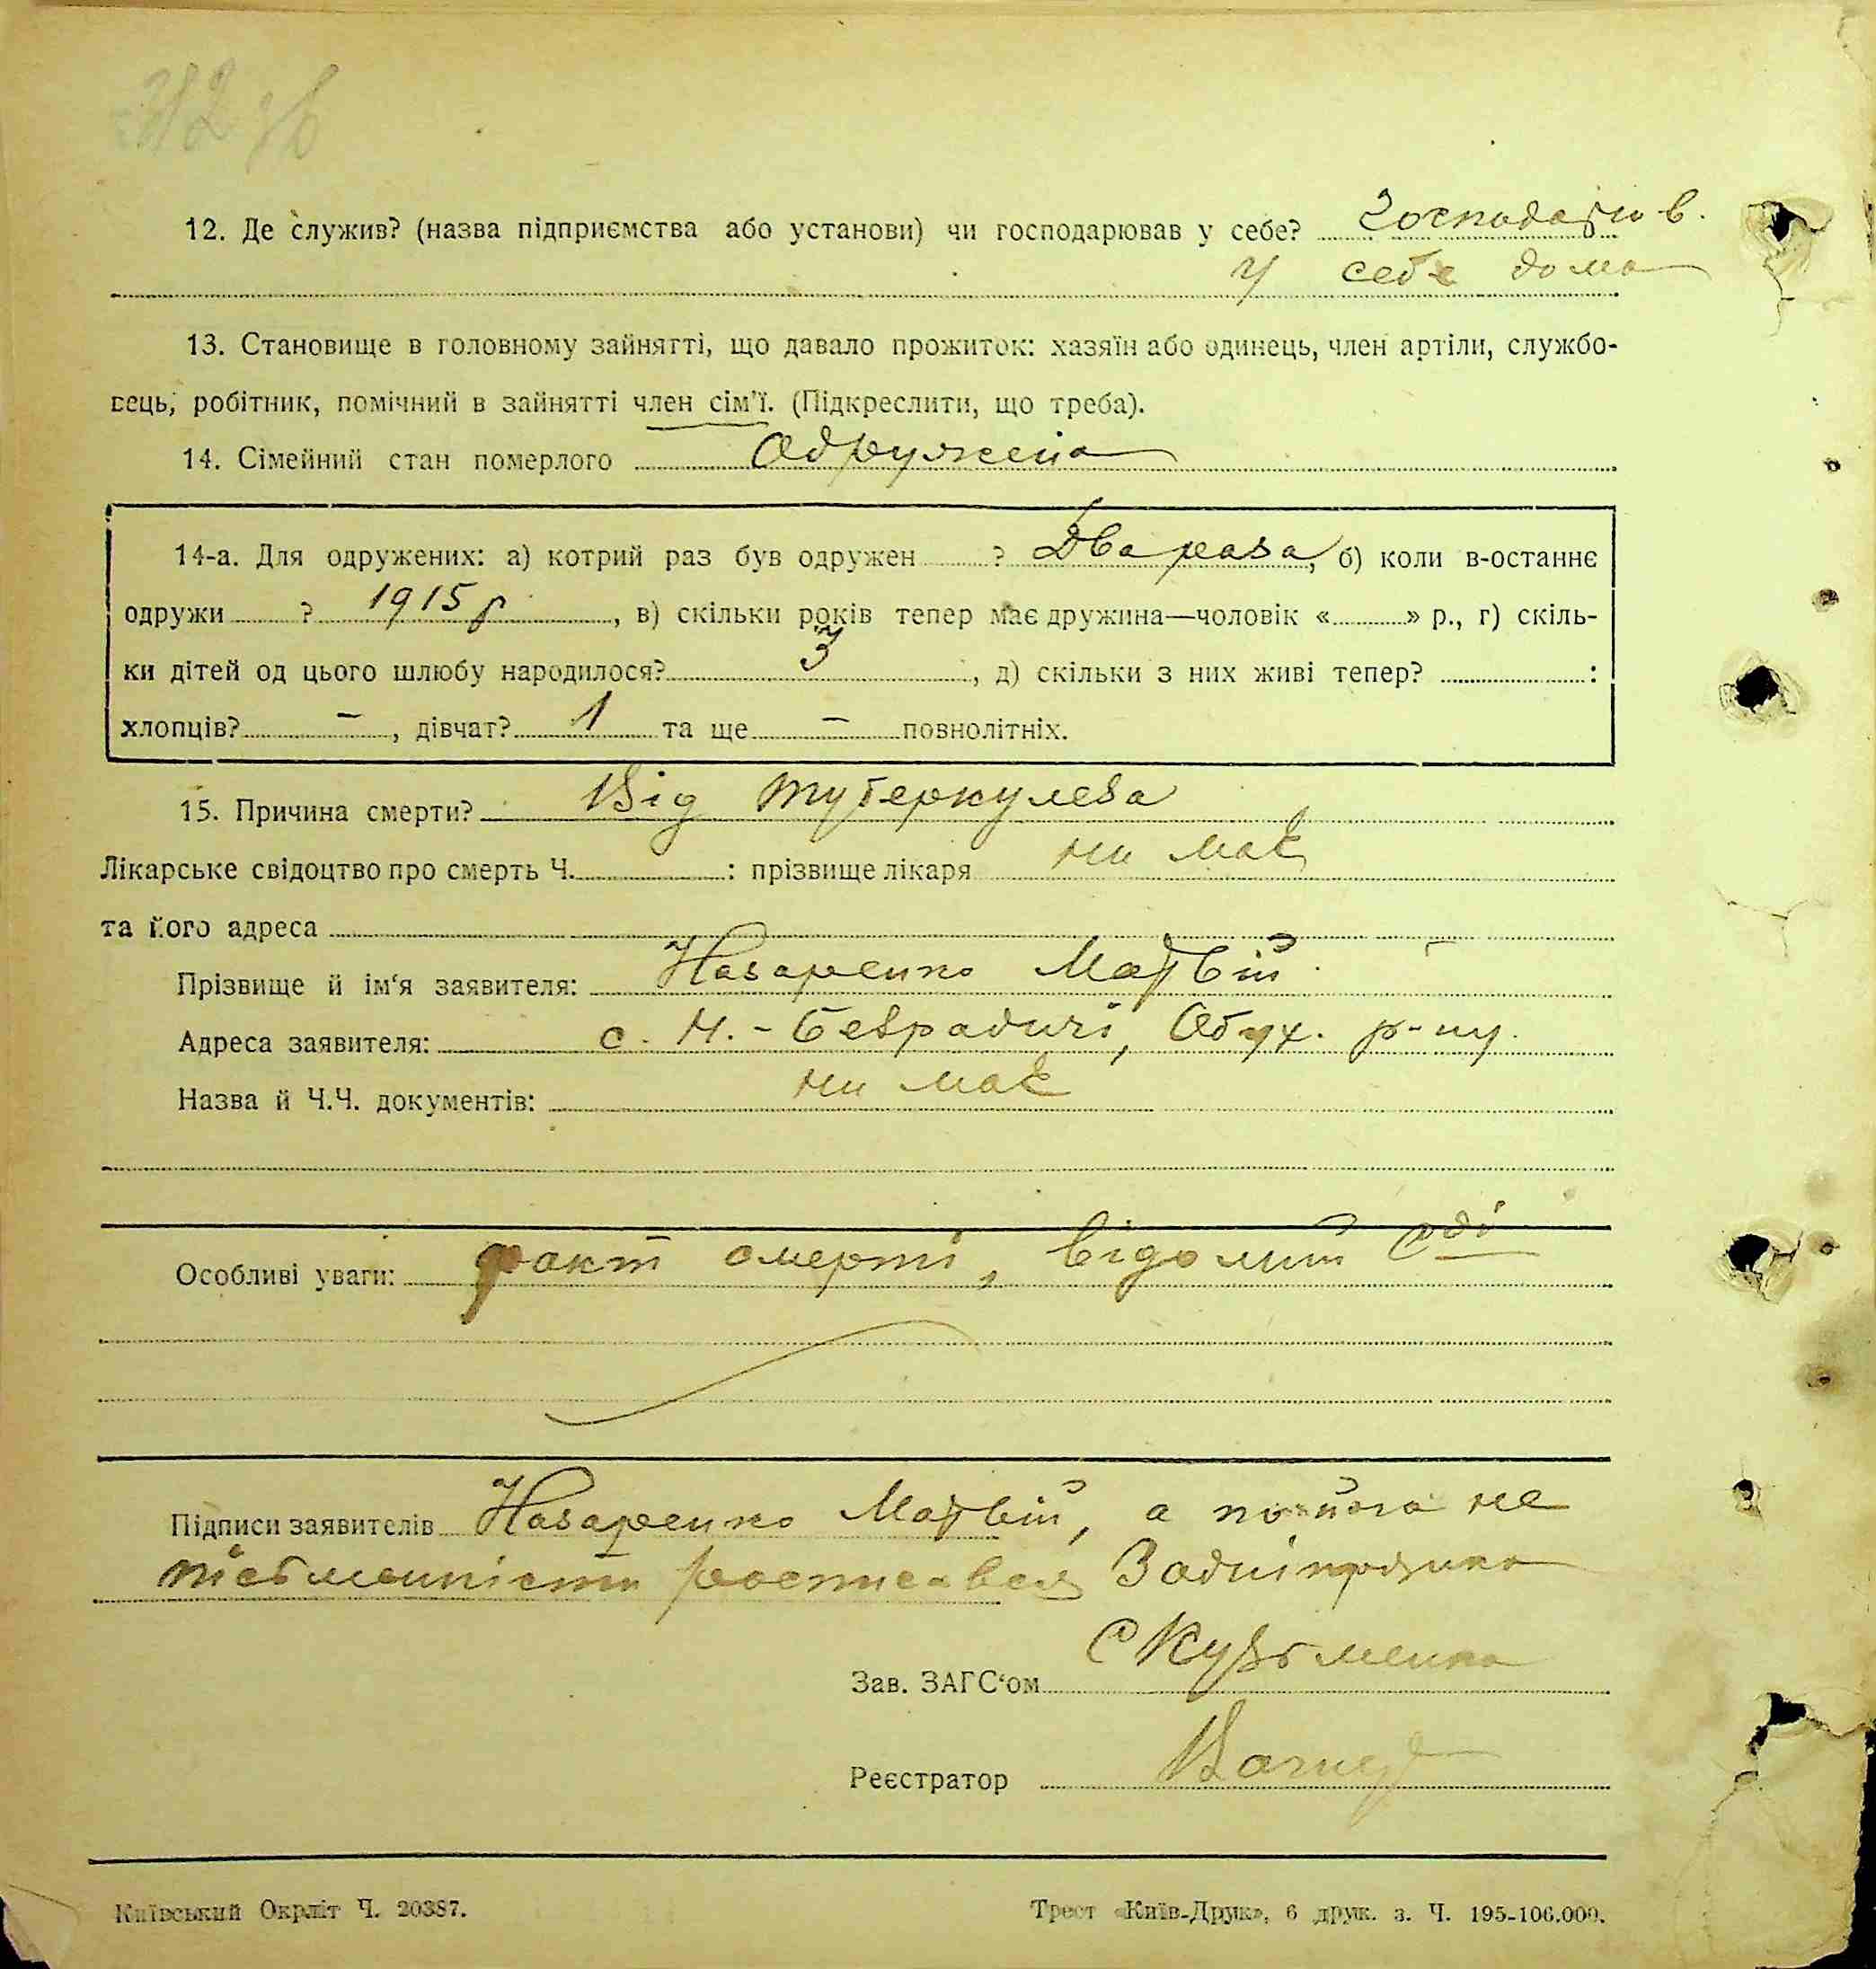 312 зв
12. Де служив? (назва підприємства або установи) чи господарював у себе? Господарюв.
у себе дома
13. Становище в головному зайнятті, що давало прожиток: хазяїн або одинець, член артіли, службо-
вець, робітник, помічний в зайнятті член сім'ї. (Підкреслити, що треба).
14. Сімейний стан померлого Одружена
14-а. Для одружених: а) котрий раз був одружен ? Два раза, б) коли в-останнє
одружи ? 1915 р , в) скільки років тепер має дружина—чоловік « » р., г) скіль-
ки дітей од цього шлюбу народилося? 3 , д) скільки з них живі тепер? :
хлопців? – , дівчат? 1 та ще – повнолітніх.
15. Причина смерти? Від туберкулеза
Лікарське свідоцтво про смерть Ч. : прізвище лікаря ни має
та його адреса
Прізвище й ім'я заявителя: Назаренко Матвій
Адреса заявителя: с. Н.-Безрадичі, Обух. р-ну.
Назва й Ч.Ч. документів: ни має
Особливі уваги: факт смерті, відомий с/ді
Підписи заявителів Назаренко Матвій, а по його не
письменности росписався Задніпряний
Зав. ЗАГС'ом С Кузьменко
Реєстратор
Київський Окрліт Ч. 20387.
Трест «Київ-Друк», 6 друк. з. Ч. 195-106.000.